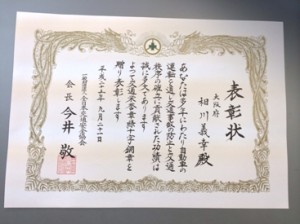 表彰状
大阪府
相川義幸殿
あなたは多年にわたり自動車の
運転を通し交通事故の防止と交通
秩序の確立に貢献された功績は
誠に多大であります
よって交通栄誉章緑十字銅章を
贈り表彰します
平成二十五年九月二十一日
一般財団法人全日本交通安全協会
会長 今井敬